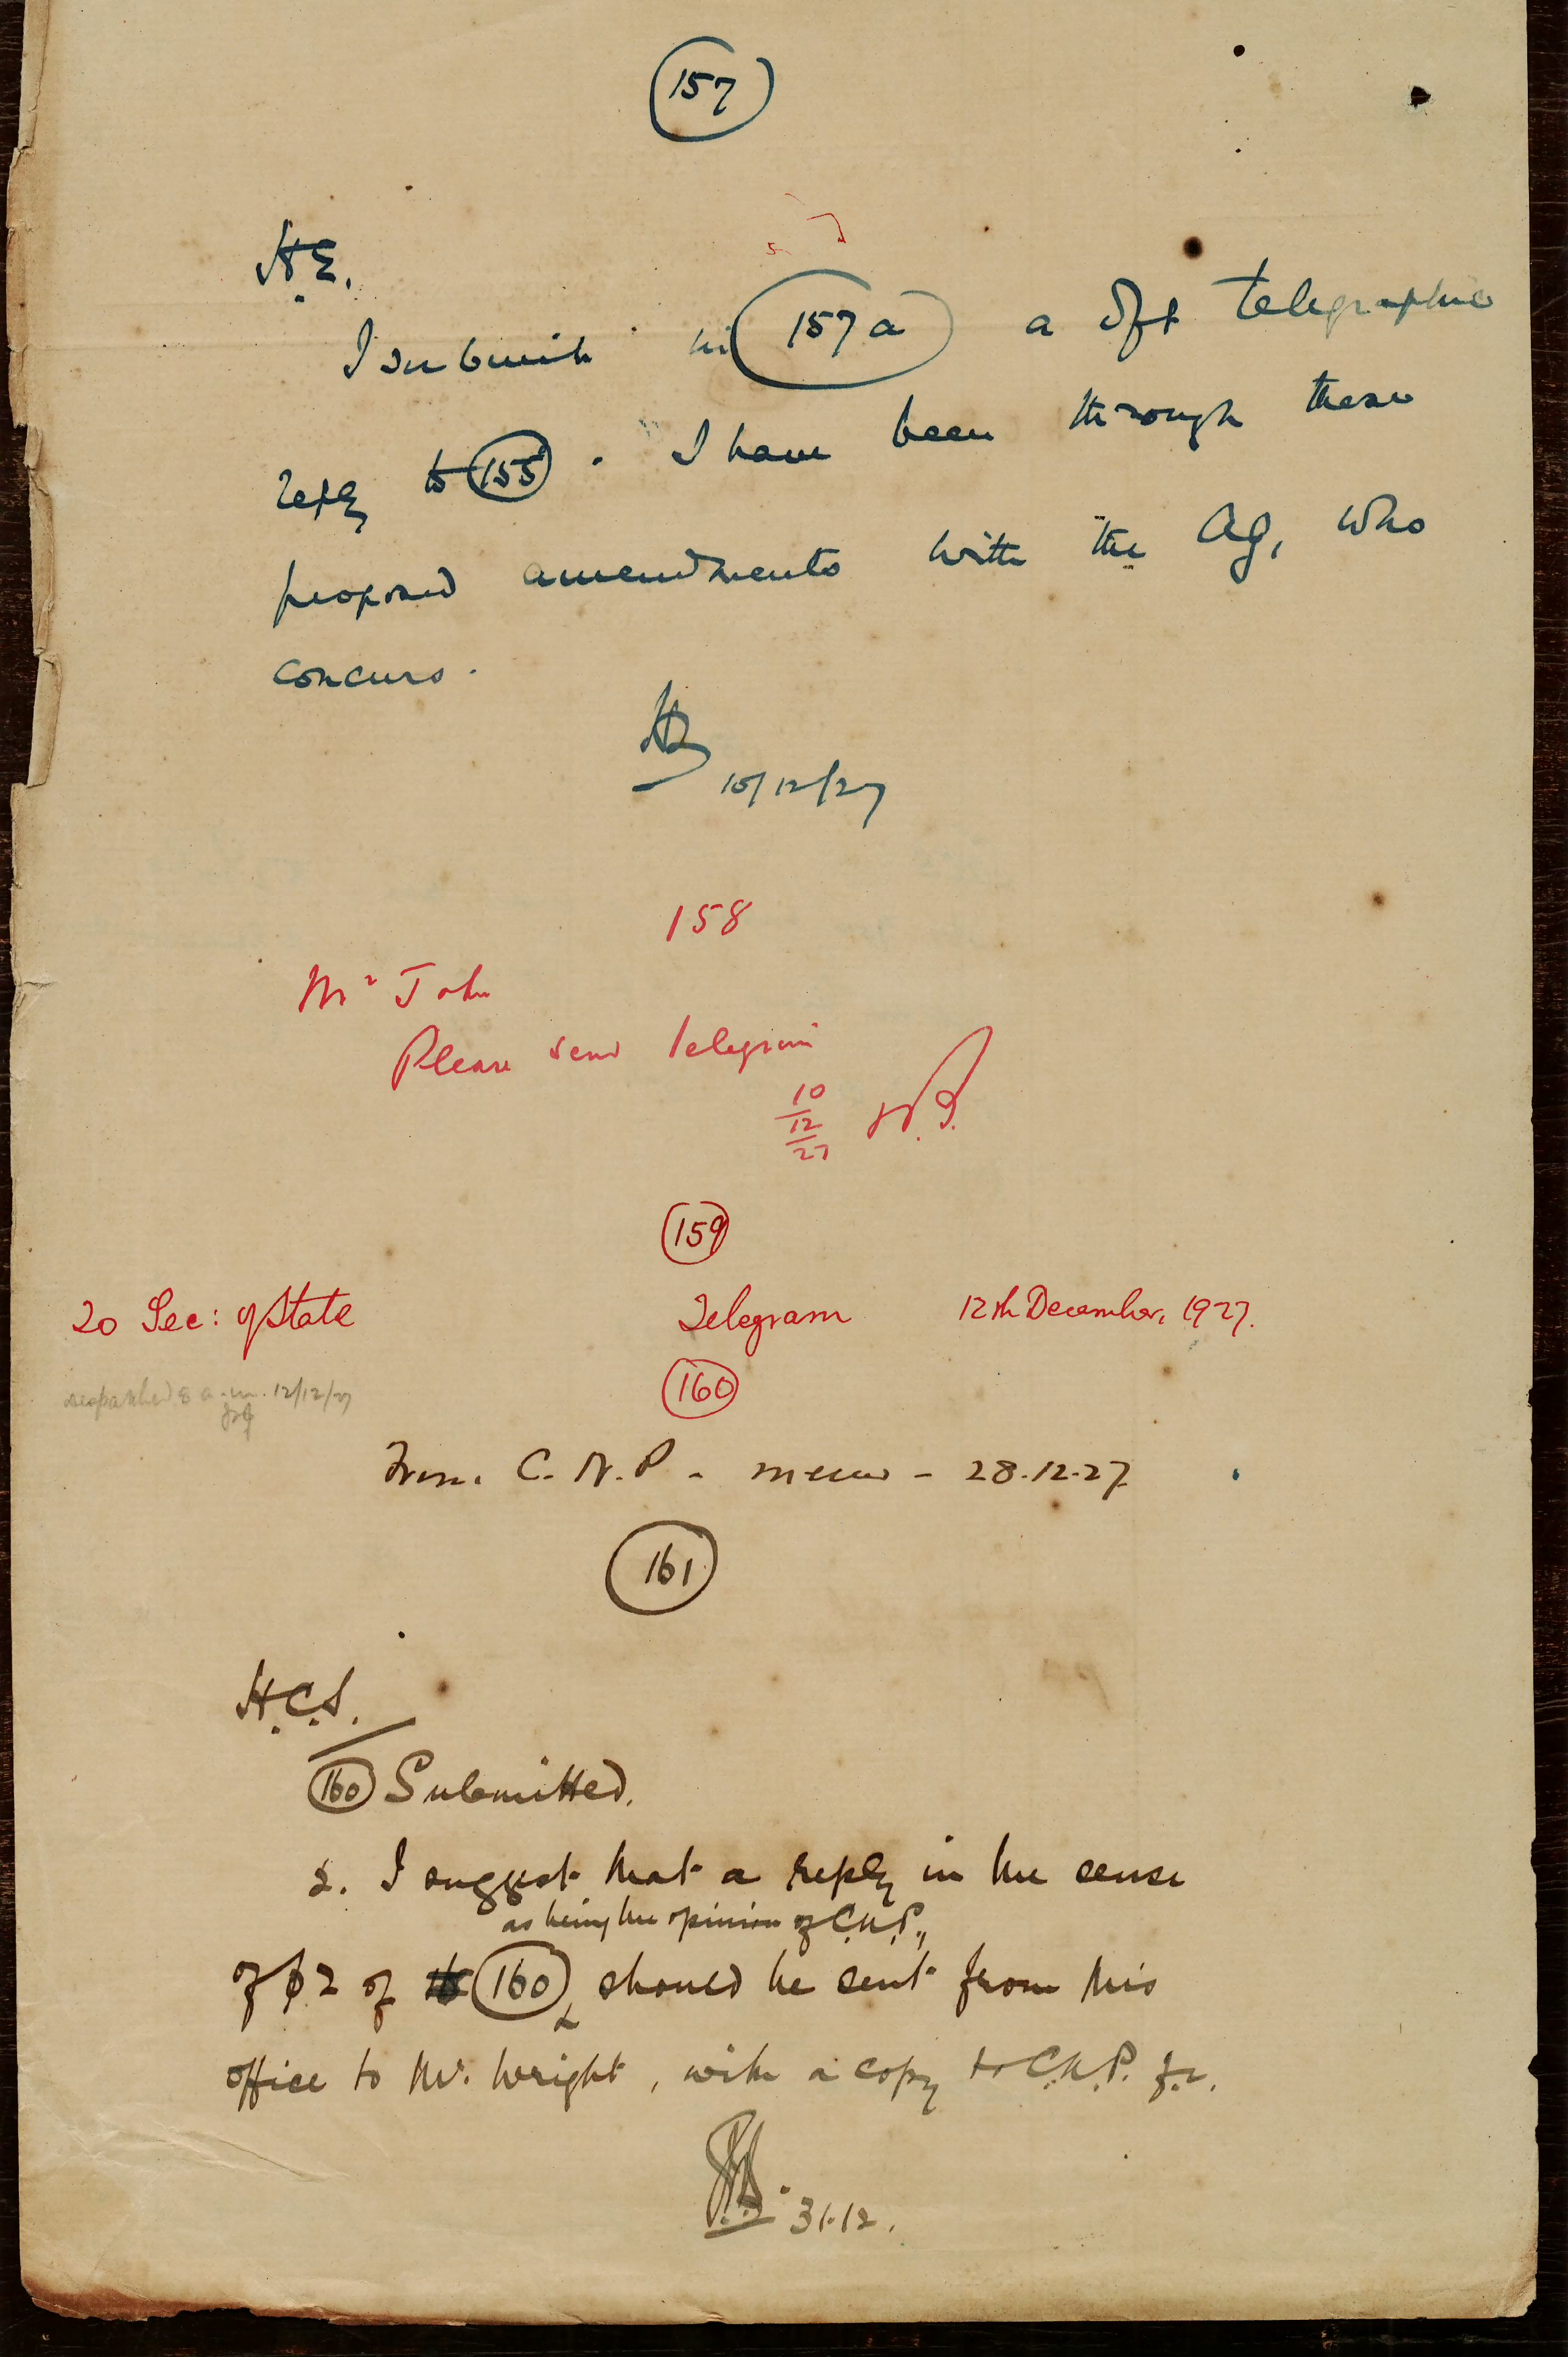 157
H.E.
I submit in 157a a dft telegraphic
reply to 155. I have been through these
proposed amendments with the AG, who
concurs.
10/12/27
158
Mr John
Please send telegram
10/12/27
159
To Sec: of State Telegram 12th December, 1927.
despatched 8 a.m. 12/12/27
160
From C.N.P - memo - 28.12.27
161
H.C.S.
160 Submitted.
2. I suggest that a reply in the sense
as being the opinion of C.N.P.,
of p 2 of 160 should be sent from this
office to Mr. Wright, with a copy to C.N.P. f.i.
31.12.